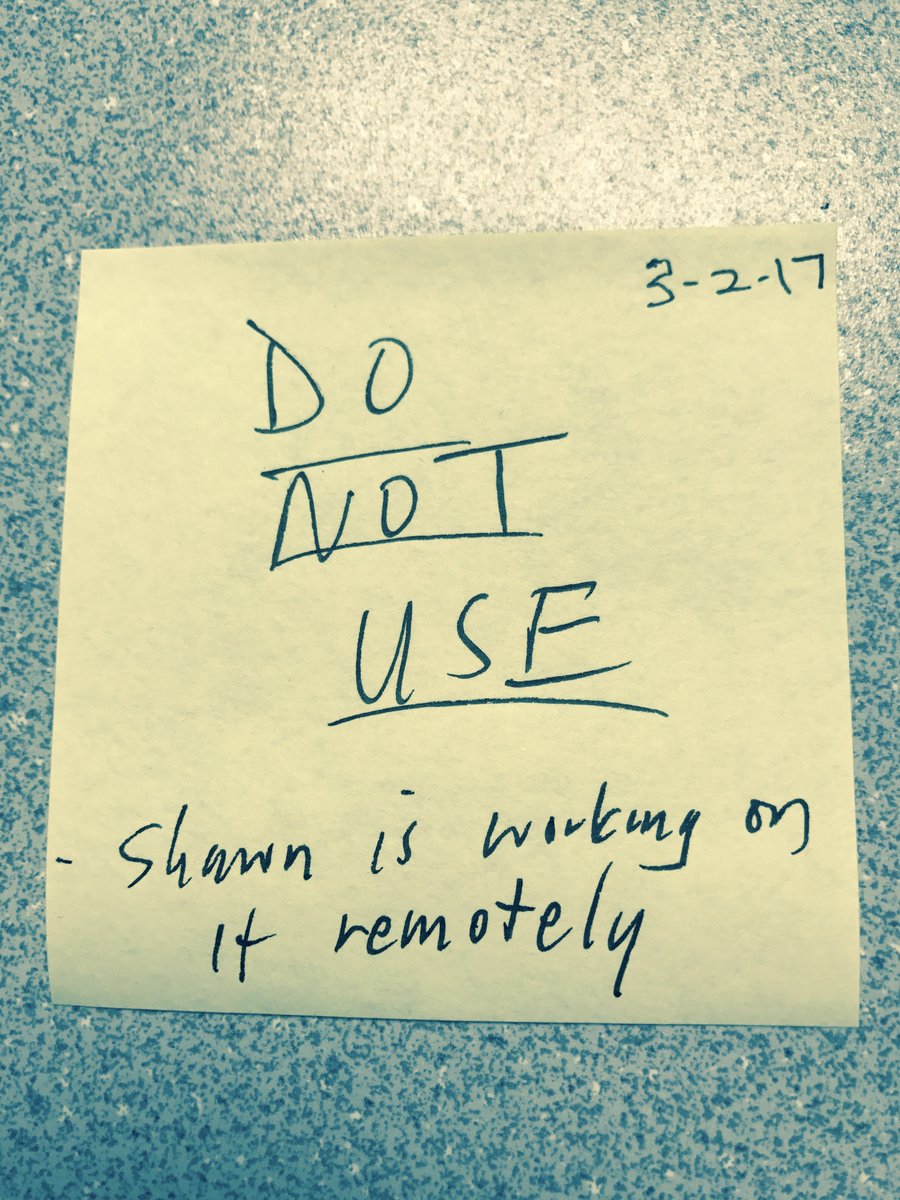 3-2-17
DO
NOT
USE
- Shawn is working on
it remotely